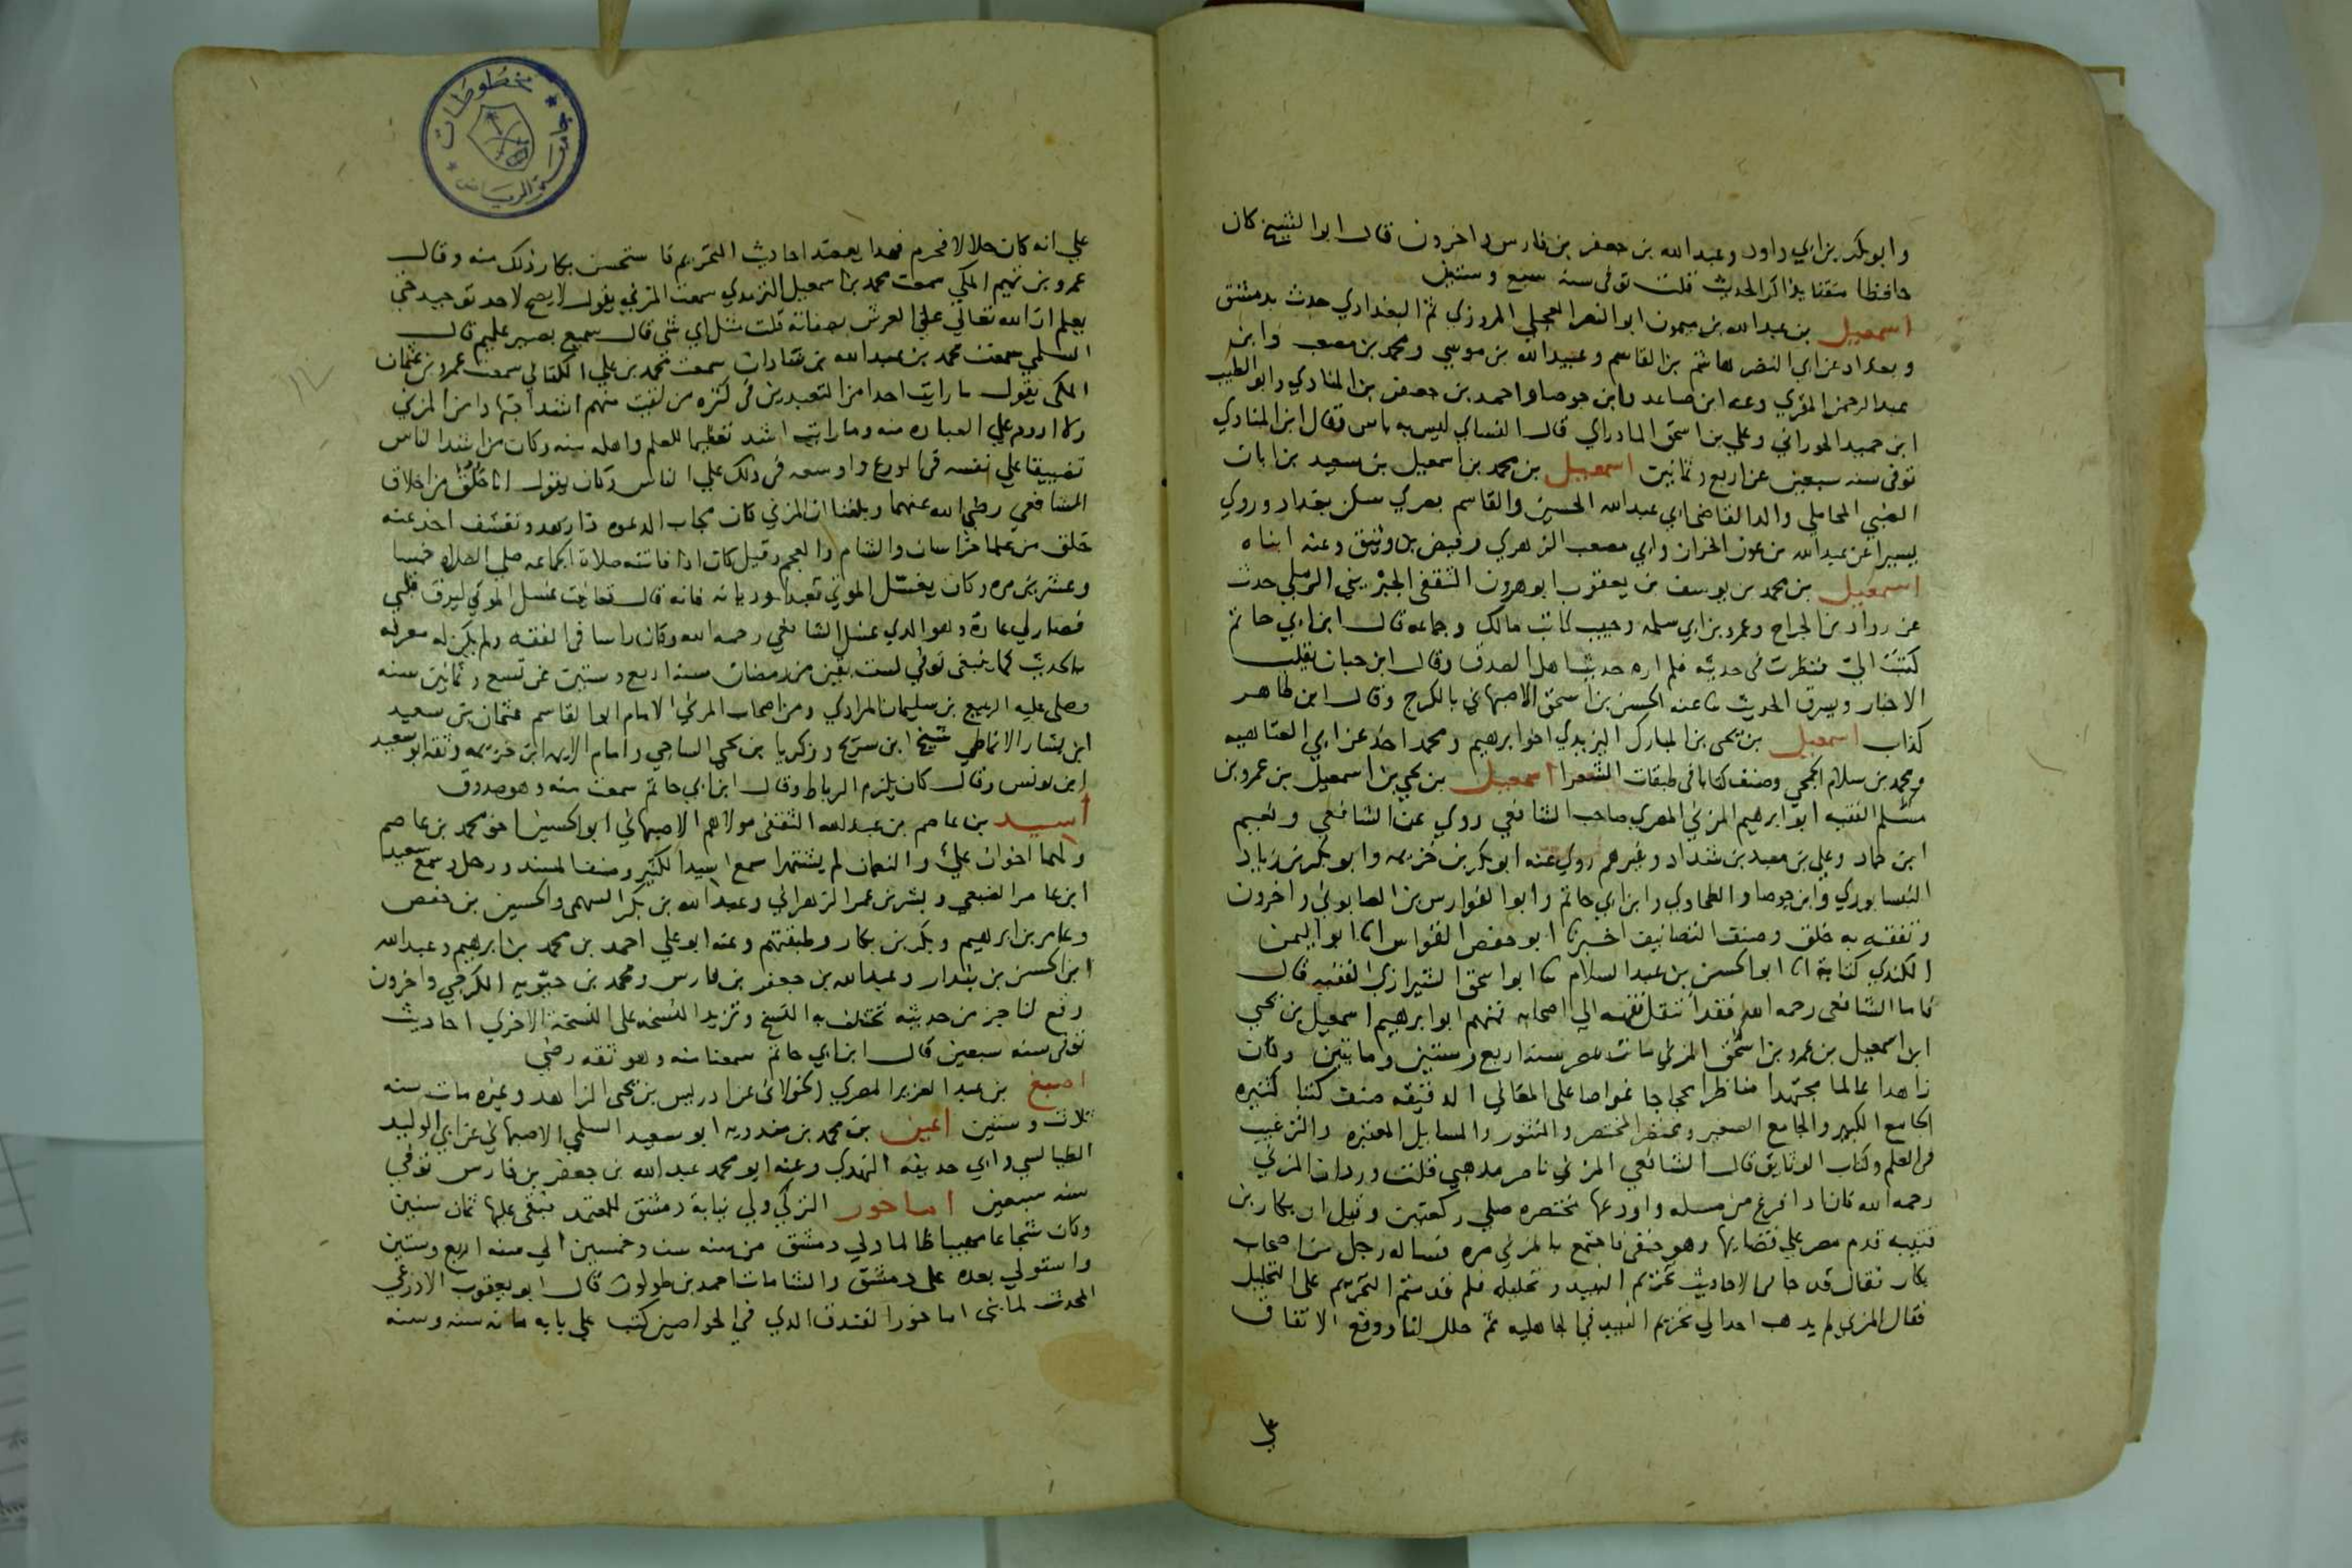 وابو بكر بن ابي داود وعبد الله بن جعفر بن فارس واخرون قال ابو الشيخ كان
حافظا متقنا يذاكر الحديث قلت توفي سنه سبع وستين
اسمعيل بن عبد الله بن ميمون ابو النصر العجلي المروزي ثم البغدادي حدث بدمشق
وبغداد عن ابي النضر هاشم بن القاسم وعبيد الله بن موسي ومحمد بن مصعب وابي
عبد الرحمن المقري وعنه ابن صاعد وابن جوصا واحمد بن جعفر بن المنادي وابو الطيب
ابن حميد الحوراني وعلي بن اسحق المادراي قال النساي ليس به باس وقال ابن المنادي
توفي سنه سبعين عن اربع وثمانين اسمعيل بن محمد بن اسمعيل بن سعيد بن ابان
الضبي المحاملي والد القاضي ابي عبد الله الحسين والقاسم بصري سكن بغداد وروي
يسيرا عن عبد الله بن عون الخزاز وابي مصعب الزهري وفيض بن وثيق وعنه ابناه
اسمعيل بن محمد بن يوسف بن يعقوب ابو هرون الثقفي الجبريني الرملي حدث
عن رواد بن الجراح وعمرو بن ابي سلمه وحبيب كاتب مالك وجماعه قال ابن ابي حاتم
كتبت الي فنظرت في حديثه فلم اره حديث اهل الصدق وقال ابن حبان يقلب
الاخبار ويسرق الحديث ثنا عنه الحسين بن اسحق الاصبهاني بالكرج وقال ابن طاهر
كذاب اسمعيل بن يحيي بن المبارك اليزيدي اخو ابرهيم ومحمد اخذ عن ابي العتاهيه
ومحمد بن سلام الجمحي وصنف كتابا في طبقات الشعرا اسمعيل بن يحيي بن اسمعيل بن عمرو بن
مسلم الفقيه ابو ابرهيم المزني المصري صاحب الشافعي روي عن الشافعي ونعيم
ابن حماد وعلي بن معبد بن شداد وغيرهم روي عنه ابو بكر بن خزيمه وابو بكر بن زياد
النيسابوري وابن جوصا والطحاوي وابن ابي حاتم وابو الفوارس بن الصابوني واخرون
وتفقه به خلق وصنف التصانيف اخبرنا ابو حفص القواس انا ابو اليمن
الكندي كتابة انا ابو الحسن بن عبد السلام ثنا ابو اسحق الشيرازي الفقيه قال
فاما الشافعي رحمه الله فقد انتقل فقهه الي اصحابه فمنهم ابو ابرهيم اسمعيل بن يحيي
ابن اسمعيل بن عمرو بن اسحق المزني مات بمصر سنه اربع وستين وماتين وكان
زاهدا عالما مجتهدا مناظرا محجاجا غواصا علي المعاني الدقيقه صنف كتبا كثيره
الجامع الكبير والجامع الصغير ومختصر المختصر والمنثور والمسايل المعتبره والترغيب
في العلم وكتاب الوثايق قال الشافعي المزني ناصر مذهبي قلت ورد ان المزني
رحمه الله كان اذا فرغ من مسله واودعها مختصره صلي ركعتين وقيل ان بكار بن
قتيبه قدم مصر علي قضايها وهو حنفي فاجتمع بالمزني مره فساله رجل من اصحاب
بكار فقال قد جا في الاحاديث تحريم النبيذ وتحليله فلم قدمتم التحريم علي التحليل
فقال المزني لم يذهب احد الي تحريم النبيذ في الجاهليه ثم حلل لنا ووقع الاتفاق
علي
علي انه كان حلالا فحرم فهذا يعضد احاديث التحريم فاستحسن بكار ذلك منه وقال
عمرو بن تميم المكي سمعت محمد بن اسمعيل الترمذي سمعت المزني يقول لا يصح لاحد توحيد حتي
يعلم ان الله تعالي علي العرش بصفاته قلت مثل اي شي قال سميع بصير عليم قال
السلمي سمعت محمد بن عبد الله بن شاذان سمعت محمد بن علي الكتاني سمعت عمرو بن عثمان
المكي يقول ما رايت احدا من المتعبدين في كثره من لقيت منهم اشد اجتهادا من المزني
ولا ادوم علي العباده منه وما رايت اشد تعظيما للعلم واهله منه وكان من اشد الناس
تضييقا علي نفسه في الورع واوسعه في ذلك علي الناس وكان يقول انا خلق من اخلاق
الشافعي رضي الله عنهما وبلغنا ان المزني كان مجاب الدعوه ذا زهد وتقشف اخذ عنه
خلق من علما خراسان والشام والعجم وقيل كان اذا فاتته صلاة الجماعه صلي الصلاه خمسا
وعشرين مره وكان يغسل الموتي تعبدا وديانه فانه قال تعانيت غسل الموتي ليرق قلبي
فصار لي عادة وهو الذي غسل الشافعي رحمه الله وكان راسا في الفقه ولم يكن له معرفه
بالحديث كما ينبغي توفي لست بقين من رمضان سنه اربع وستين عن تسع وثمانين سنه
وصلي عليه الربيع بن سليمان المرادي ومن اصحاب المزني الامام ابو القاسم عثمان بن سعيد
ابن بشار الانماطي شيخ ابن سريج وزكريا بن يحيي الساجي وامام الايمه ابن خزيمه وثقه ابو سعيد
ابن يونس وقال كان يلزم الرباط وقال ابن ابي حاتم سمعت منه وهو صدوق
أسيد بن عاصم بن عبد الله الثقفي مولاهم الاصبهاني ابو الحسين اخو محمد بن عاصم
ولهما اخوان علي والنعمان لم يشتهرا سمع اسيد الكثير وصنف المسند ورحل وسمع سعيد
ابن عامر الضبعي وبشر بن عمر الزهراني وعبد الله بن بكر السهمي والحسين بن حفص
وعامر بن ابرهيم وبكر بن بكار وطبقتهم وعنه ابو علي احمد بن محمد بن ابرهيم وعبد الله
ابن الحسن بن بندار وعبد الله بن جعفر بن فارس ومحمد بن حيويه الكرجي واخرون
وقع لنا جز من حديثه تختلف به النسخ وتزيد النسخه علي النسخة الاخري احاديث
توفي سنه سبعين قال ابن ابي حاتم سمعنا منه وهو ثقه رضي
اصبغ بن عبد العزيز المصري الخولاني عن ادريس بن يحيي الزاهد وغيره مات سنه
ثلاث وستين اعين بن محمد بن مندويه ابو سعيد السلمي الاصبهاني عن ابي الوليد
الطيالسي وابي حذيفه النهدي وعنه ابو محمد عبد الله بن جعفر بن فارس توفي
سنه سبعين اماخور التركي ولي نيابة دمشق للمعتمد فبقي عليها ثمان سنين
وكان شجاعا مهيبا ظالما ولي دمشق من سنه ست وخمسين الي سنه اربع وستين
واستولي بعده علي دمشق والشامات احمد بن طولون قال ابو يعقوب الاذرعي
المحدث لما بني اماخور الفندق الذي في الخواصين كتب علي بابه مائه سنه وسنه
مخطوطات
جامعة الرياض